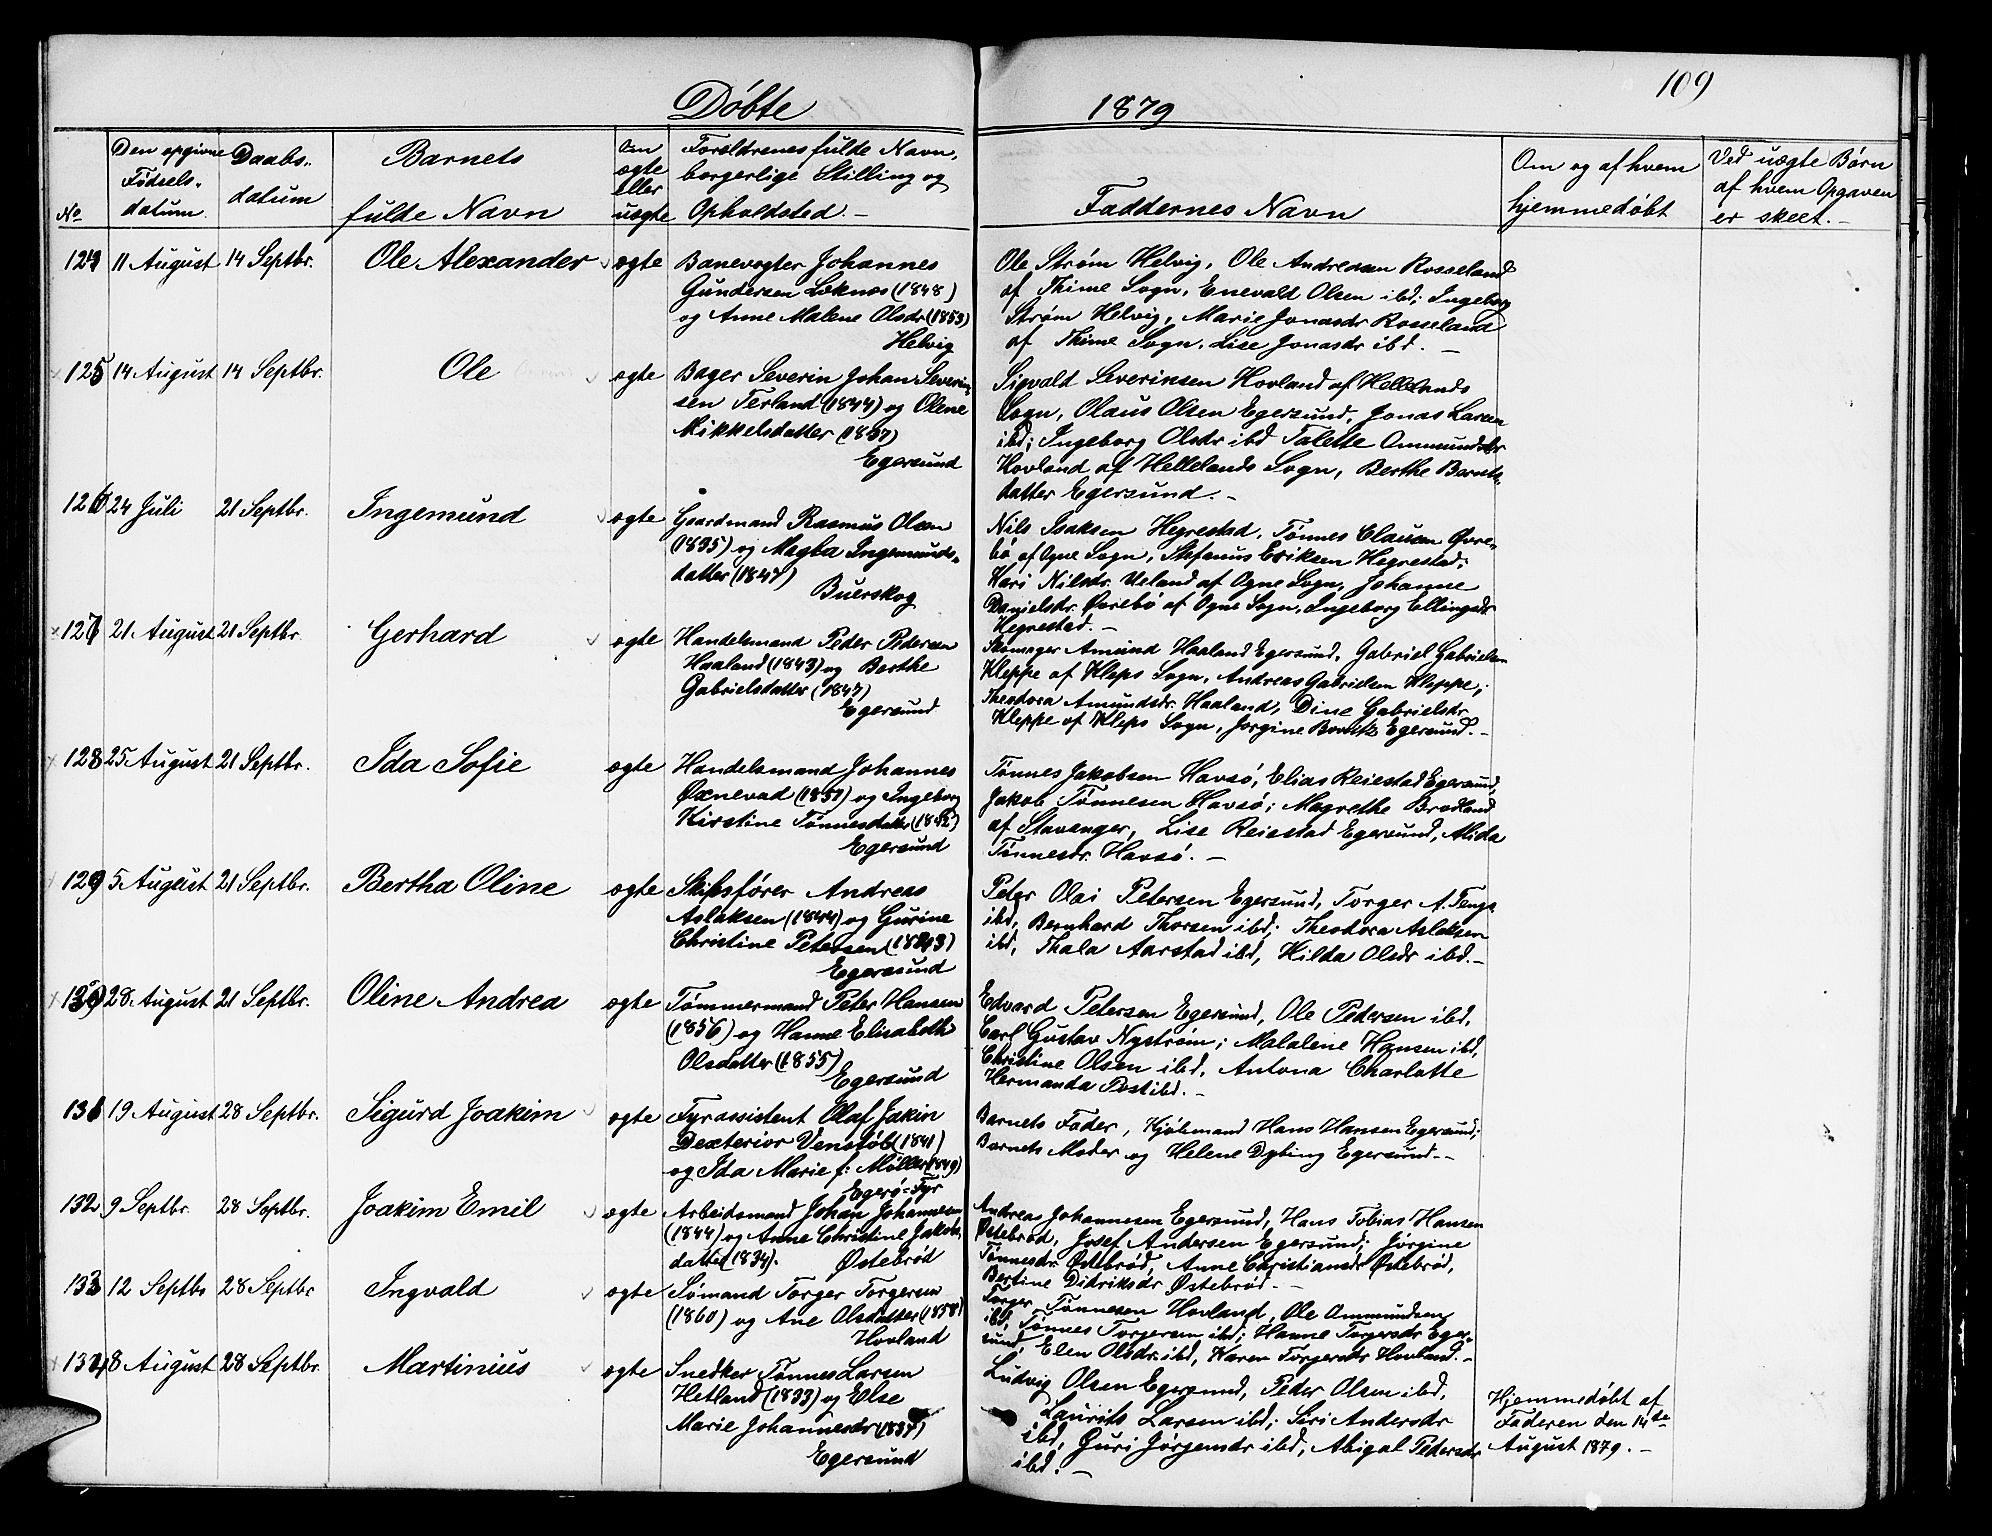 109
Døbte 1879
No
Den opgivne Fødsels-datum.
Daabs-datum
Barnets fulde Navn
Om ægte eller uægte
Forældrenes fulde Navn, borgerlige Stilling og Opholdsted.—
Faddernes Navn
Om og af hvem hjemmedøbt
Ved uægte Børn af hvem Opgaven er skeet.—
124 11 August 14 Septbr. Ole Alexander ægte
Banevogter Johannes
Gundersen Leknæs (1848)
og Anne Malene Olsdr (1853)
Helvig
Ole Strøm Helvig, Ole Andreasen Rosseland
af Thime Sogn, Enevald Olsen ibd; Ingeborg
Strøm Helvig, Marie Jonasdr Rosseland
af Thime Sogn, Lise Jonasdr ibd.—
125 14 August 14 Septbr. Ole ægte
Bager Severin Johan Severin-
sen Terland (1844) og Olene
Mikkelsdatter (1837)
Egersund
Sigvald Severinsen Hovland af Hellelands
Sogn, Olaus Olsen Egersund, Jonas Larsen
ibd; Ingeborg Olsdr ibd Talette Ommundsdr
Hovland af Hellelands Sogn, Berthe Barnts-
datter Egersund.—
126 24 Juli 21 Septbr. Ingemund ægte
Gaardmand Rasmus Olsen
(1835) og Magla Ingemunds-
datter (1847)
Buerskog
Nils Isaksen Hegrestad, Tønnes Clausen Øvre-
bø af Ogne Sogn, Stefanus Eriksen Hegrestad;
Kari Nilsdr. Ueland af Ogne Sogn, Johanne
Danielsdr. Øvrebø af Ogne Sogn, Ingeborg Ellingsdr
Hegrestad.—
127 21 August 21 Septbr. Gerhard ægte
Handelsmand Peder Pedersen
Haaland (1843) og Berthe
Gabrielsdatter (1847)
Egersund
Skomager Amund Haaland Egersund, Gabriel Gabrielsen
Kleppe af Kleps Sogn, Andreas Gabrielsen Kleppe;
Theodora Amundsdr. Haaland, Dine Gabrielsdr.
Kleppe af Kleps Sogn, Jorgine Egersund.—
128 25 August 21 Septbr. Ida Sofie ægte
Handelsmand Johannes
Øxnevad (1851) og Ingeborg
Kirstine Tønnesdatter (1852)
Egersund
Tønnes Jakobsen Havsø, Elias Reiestad Egersund,
Jakob Tønnesen Havsø; Magrethe Brodland
af Stavanger, Lise Reiestad Egersund, Alida
Tønnesdr. Havsø.—
129 5 August 21 Septbr. Bertha Oline ægte
Skibsfører Andreas
Aslaksen (1844) og Gurine
Christine Petersen (1843)
Egersund
Peter Olai Petersen Egersund, Torger A. Tengs
ibd, Bernhard Thorsen ibd; Theodora Aslaksen
ibd, Thala Aarstad ibd, Hilda Olsdr ibd.—
130 28 August 21 Septbr. Oline Andrea ægte
Tømmermand Peter Hansen
(1856) og Hanne Elisabeth
Olsdatter (1855)
Egersund
Edvard Petersen Egersund, Ole Pedersen ibd,
Carl Gustav Nystrøm; Malalene Hansen ibd,
Christine Olsen ibd, Antona Charlotte
Hermanda Post ibd.—
131 19 August 28 Septbr. Sigurd Joakim ægte
Fyrassistent Olaf Jakin
Dexterior Venstøb (1841)
og Ida Marie f: Møller (1849)
Egerø-Fyr
Barnets Fader, Kjøbmand Hans Hansen Egersund;
Barnets Moder og Helene Dybing Egersund.—
132 9 Septbr. 28 Septbr. Joakim Emil ægte
Arbeidsmand Johan Johannesen
(1844) og Anne Christine Jakobs-
datter (1834). Østebrød
Andreas Johannesen Egersund, Hans Tobias Hansen
Østebrød, Josef Andersen Egersund; Jørgine
Tønnesdr. Østebrød, Anne Christiansdr Østebrød,
Bertine Didriksdr Østebrød.—
133 12 Septbr 28 Septbr Ingvald ægte
Sømand Torger Torgersen
(1860) og Ane Olsdatter (1858)
Hovland
Torger Tønnesen Hovland, Ole Ommundsen
ibd, Tønnes Torgersen ibd; Hanne Torgersdr Eger-
sund, Elen Olsdr. ibd, Karen Torgersdr Hovland.—
134 8 August 28 Septbr. Martinius ægte
Snedker Tønnes Larsen
Hetland (1833) og Else
Marie Johannesdr (1837)
Egersund
Ludvig Olsen Egersund, Peder Olsen ibd,
Laurits Larsen ibd; Siri Andersdr
ibd, Guri Jørgensdr ibd, Abigal Pedersdr
ibd.—
Hjemmedøbt af
Faderen den 14de
August 1879.—